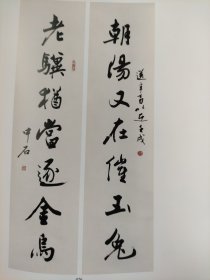 朝陽又在催玉兔
老驥猶當逐金烏
中石